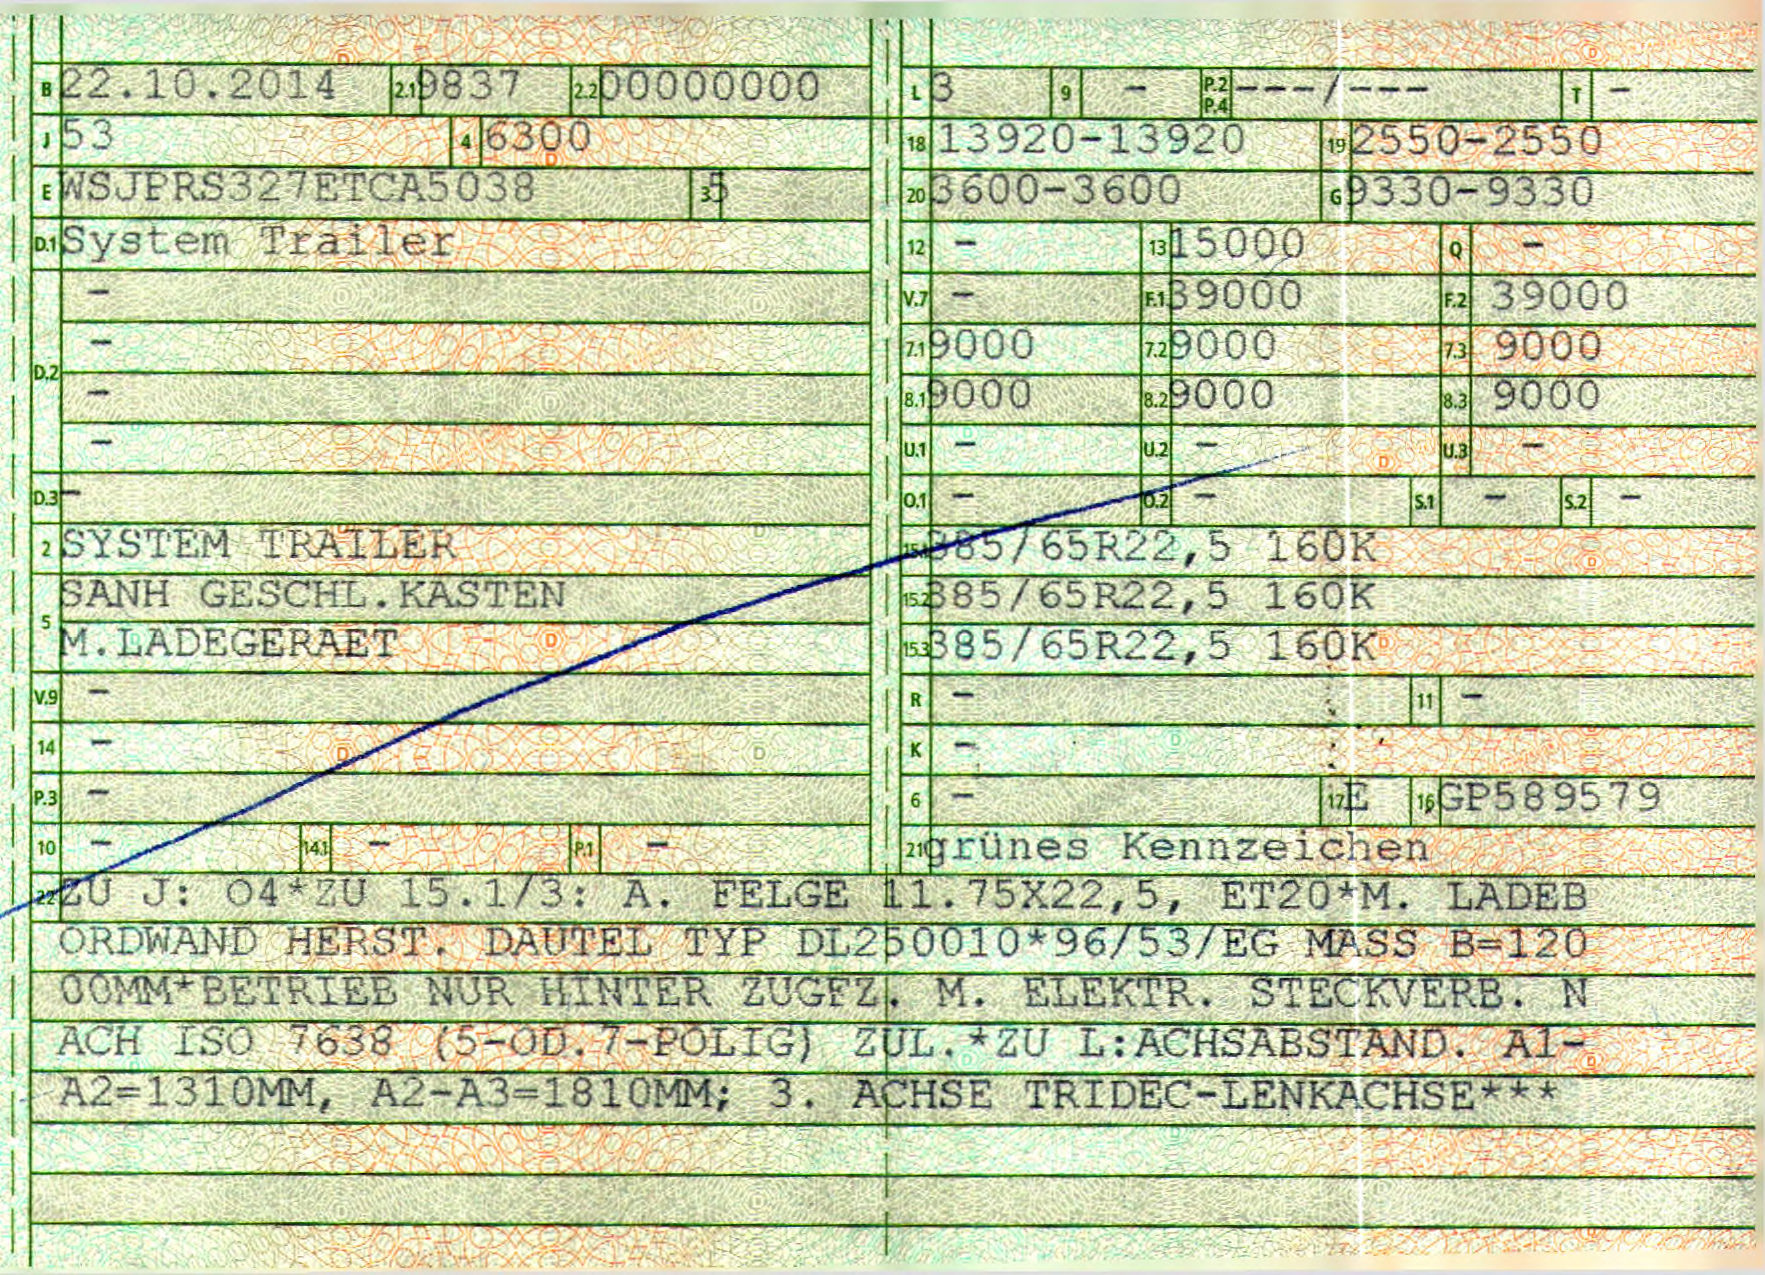 B 22.10.2014 2.1 9837 2.2 00000000
J 53 4 6300
E WSJPRS327ETCA5038 3 5
D.1 System Trailer
-
D.2 -
-
-
D.3 -
2 SYSTEM TRAILER
5 SANH GESCHL.KASTEN
M.LADEGERAET
V.9 -
14 -
P.3 -
10 - 14.1 - P.1 -
L 3 9 - P.2 P.4 ---/--- T -
18 13920-13920 19 2550-2550
20 3600-3600 G 9330-9330
12 - 13 15000 Q -
V.7 - F.1 39000 F.2 39000
7.1 9000 7.2 9000 7.3 9000
8.1 9000 8.2 9000 8.3 9000
U.1 - U.2 - U.3 -
O.1 - O.2 - S.1 - S.2 -
15.1 385/65R22,5 160K
15.2 385/65R22,5 160K
15.3 385/65R22,5 160K
R - 11 -
K -
6 - 17 E 16 GP589579
21 grünes Kennzeichen
22 ZU J: O4*ZU 15.1/3: A. FELGE 11.75X22,5, ET20*M. LADEB
ORDWAND HERST. DAUTEL TYP DL250010*96/53/EG MASS B=120
00MM*BETRIEB NUR HINTER ZUGFZ. M. ELEKTR. STECKVERB. N
ACH ISO 7638 (5-OD.7-POLIG) ZUL.*ZU L:ACHSABSTAND. A1-
A2=1310MM, A2-A3=1810MM; 3. ACHSE TRIDEC-LENKACHSE***